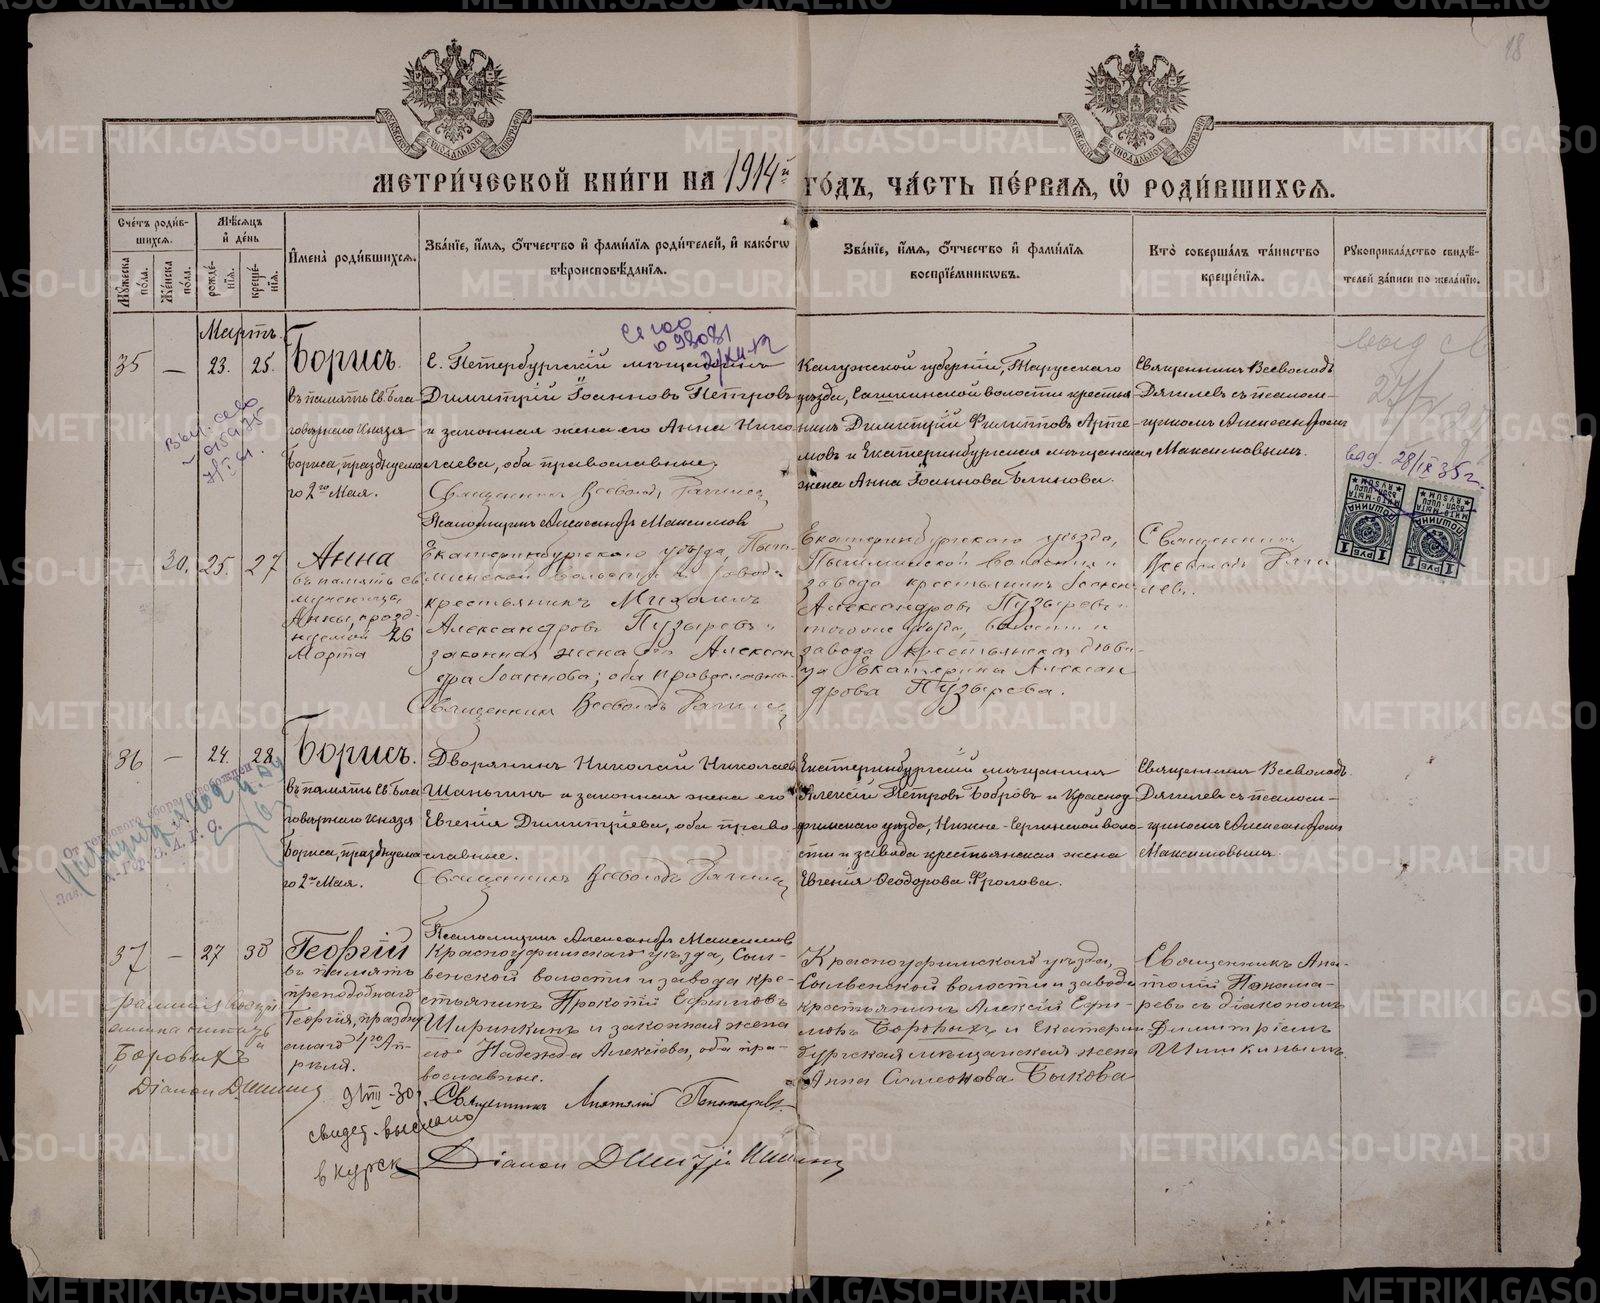 18
МЕТРИ́ЧЕСКОЙ КНИ́ГИ НА 1914й ГО́ДЪ, ЧА́СТЬ ПЕ́РВАЯ, Ѡ РОДИ́ВШИХСЯ.
Сче́тъ роди́в-
шихся.
Мꙋ́жеска по́ла.
Же́нска по́ла.
Мѣ́сяцъ
и де́нь
рожде́-
нїя.
креще́-
нїя.
Имена̀ роди́вшихся.
Зва́нїе, и́мя, о́тчество и фами́лїя роди́телей, и како́гѡ
вѣроисповѣ́данїя.
Зва́нїе, и́мя, о́тчество и фами́лїя
воспрїе́мникѡвъ.
Кто̀ соверша́лъ та́инство
креще́нїя.
Рꙋкоприкла́дство свидѣ́-
телей за́писи по жела́нїю.
Мартъ.
35
—
23.
25.
Борисъ.
въ память Св. Бла-
говѣрнаго Князя
Бориса, празднуема-
го 2го Мая.
С. Петербургскій мѣщанинъ
Димитрій Іоанновъ Петровъ
и законная жена его Анна Нико-
лаева, оба православные.
Священникъ Всеволодъ
Псаломщикъ Александръ Максимовъ
Калужской губерніи, Тарусскаго
уѣзда, волости крестья-
нинъ Димитрій Филипповъ Арте-
мовъ и Екатеринбургская мѣщанская
жена Анна Іоаннова Блинова.
Священникъ Всеволодъ
съ псалом-
щикомъ Александромъ
Максимовымъ.
выд. 28/IX 35 г.
1 РУБ 1
1 РУБ 1
—
30.
25.
27
Анна
въ память св.
мученицы
Анны, празд-
нуемой 26
Марта
Екатеринбургскаго уѣзда, Пыш-
минской волости и завода
крестьянинъ Михаилъ
Александровъ Пузыревъ и
законная жена его Алексан-
дра Іоаннова; оба православны.
Священникъ Всеволодъ
Екатеринбургскаго уѣзда,
Пышминской волости и
завода крестьянинъ
Александровъ Пузыревъ и
того же уѣзда, волости и
завода крестьянская дѣви-
ца Екатерина Алексан-
дрова Пузырева.
Священникъ
Всеволодъ
36
—
24.
28
Борисъ.
въ память Св. Бла-
говѣрнаго Князя
Бориса, празднуема-
го 2го Мая.
Дворянинъ Николай Николаевъ
Шаньгинъ и законная жена его
Евгенія Димитріева, оба право-
славные.
Священникъ Всеволодъ
Псаломщикъ Александръ Максимовъ
Екатеринбургскій мѣщанинъ
Алексій Петровъ Бобровъ и Красноу-
фимскаго уѣзда, Нижне-Сергинской воло-
сти и завода крестьянская жена
Евгенія Ѳеодорова Фролова.
Священникъ Всеволодъ
съ псалом-
щикомъ Александромъ
Максимовымъ.
37
—
27
30
Георгій
въ память
преподобнаго
Георгія, праздну-
емаго 4го Ап-
рѣля.
Красноуфимскаго уѣзда, Сыл-
венской волости и завода кре-
стьянинъ Прокопій Ефимовъ
Ширинкинъ и законная жена
его Надежда Алексіева, оба пра-
вославные.
Священникъ Анатолій Пономаревъ.
Діаконъ Димитрій Шишкинъ
Красноуфимскаго уѣзда,
Сылвенской волости и завода
крестьянинъ Алексій Ефи-
мовъ Боровыхъ и Екатерин-
бургская мѣщанская жена
Анна Симеонова Быкова
Священникъ Ана-
толій Понома-
ревъ съ діакономъ
Димитріемъ
Шишкинымъ.
Боровыхъ
Діаконъ
9/VIII-30
свидет. выслано
в Курск
METRIKI.GASO-URAL.RU